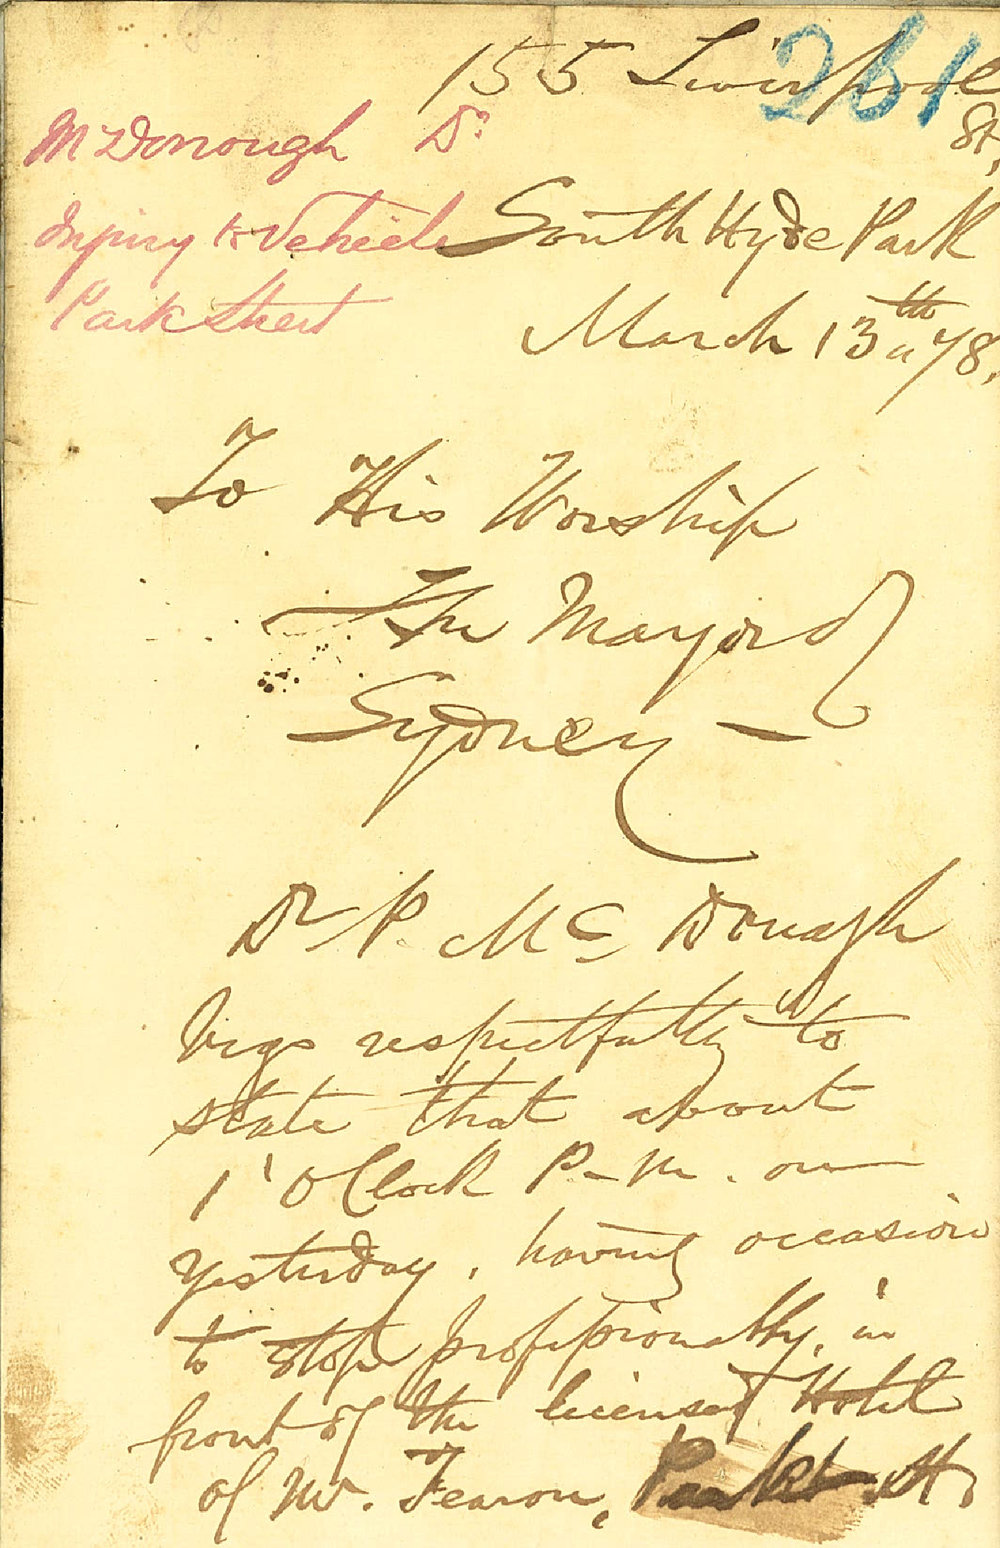 261
155 Liverpool
St,
McDonough Dr
Injury to Vehicle
Park Street
South Hyde Park
March 13th "/78.
To His Worship
The Mayor
Sydney –
Dr P. McDonagh
begs respectfully to
state that about
1 'OClock P-m. on
yesterday, having occasion
to stop professionally, in
front of the licensed Hotel
of Mr. Fearon, Park St,